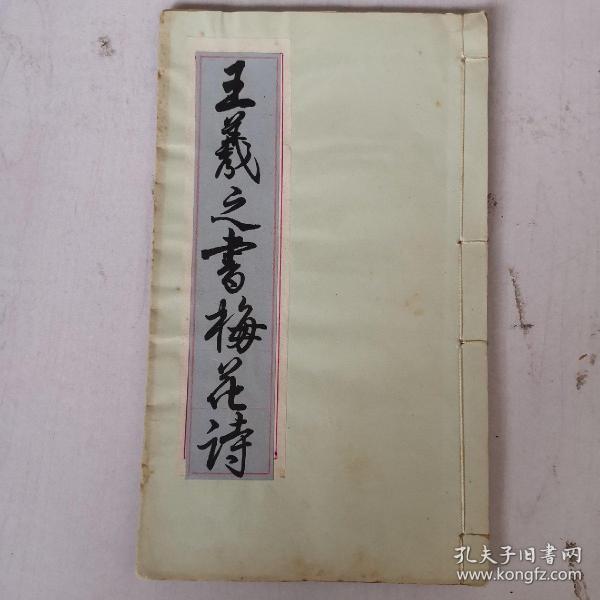 王羲之書梅花詩
孔夫子旧书网
www.kongfz.com